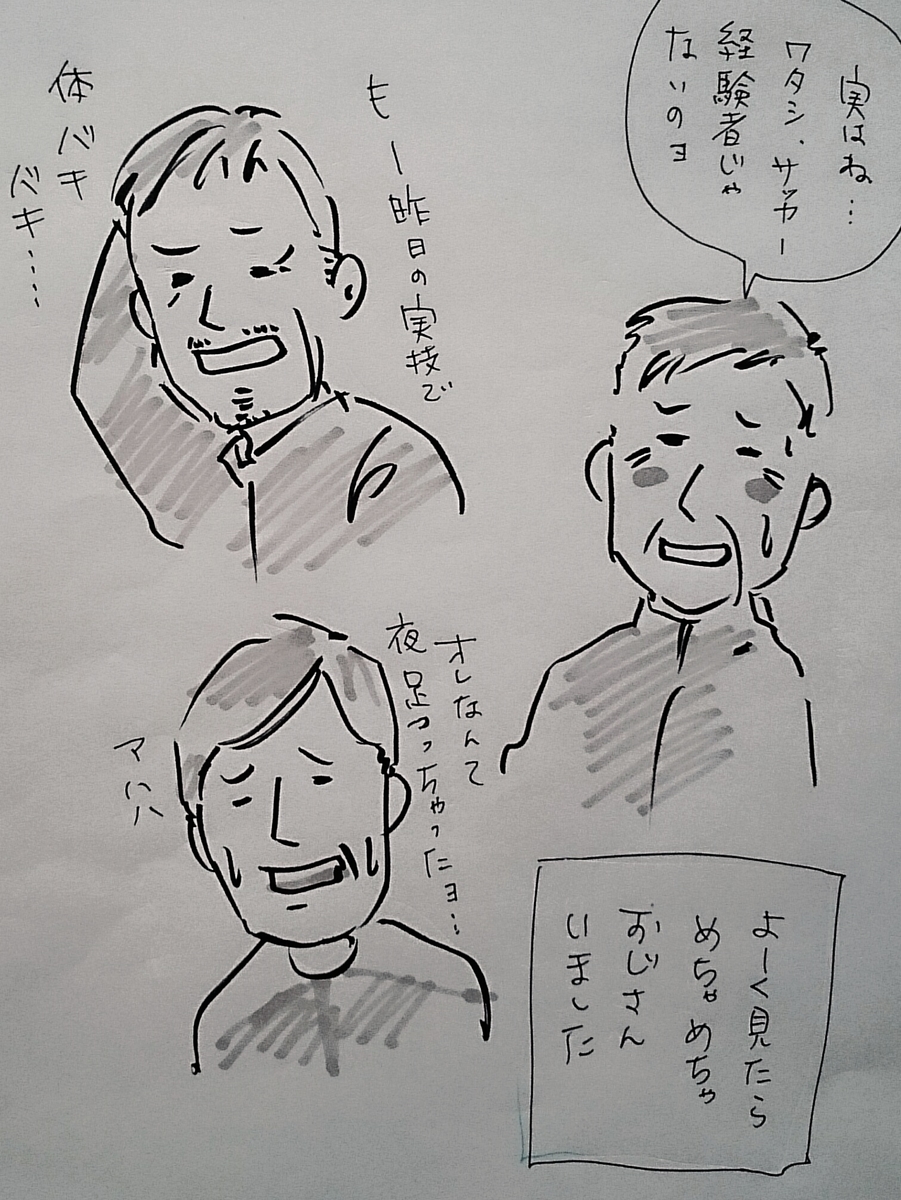 実はね…
ワタシ、サッカー
経験者じゃ
ないのヨ
もー昨日の実技で
体バキ
バキ……
オレなんて
夜足つっちゃったヨ…
アハハ
よーく見たら
めちゃめちゃ
おじさん
いました